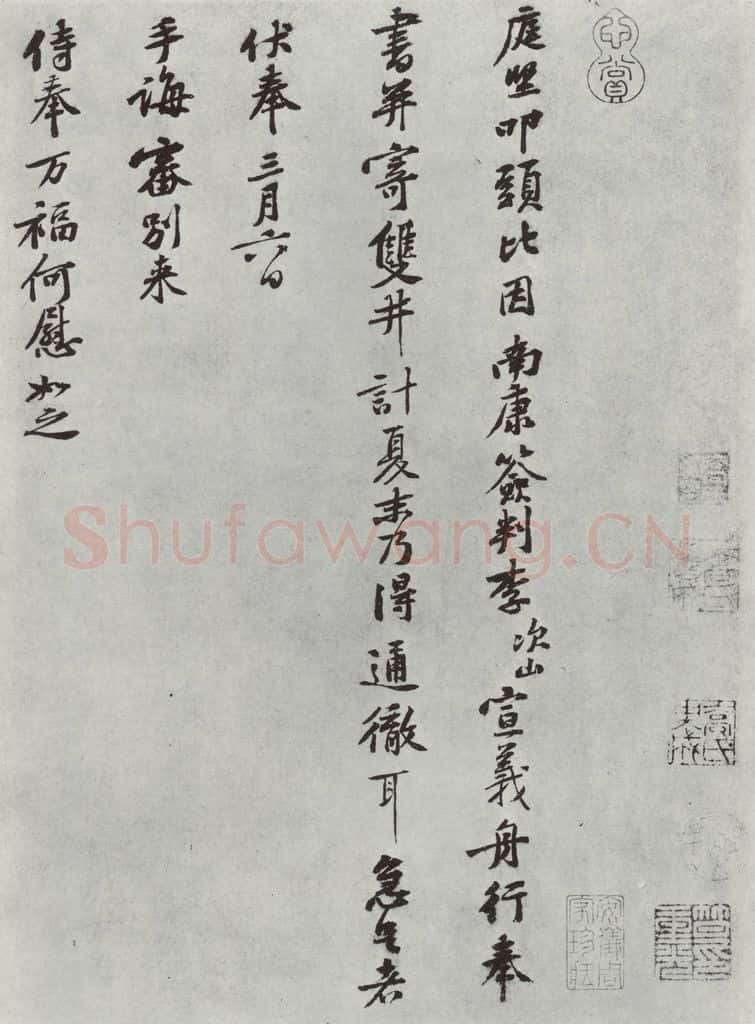 庭坚叩頭比因南康簽判李次山宣義舟行奉
書并寄雙井計夏末乃得通徹耳急足者
伏奉三月六日
手誨審別来
侍奉万福何慰如之
Shufawang.CN